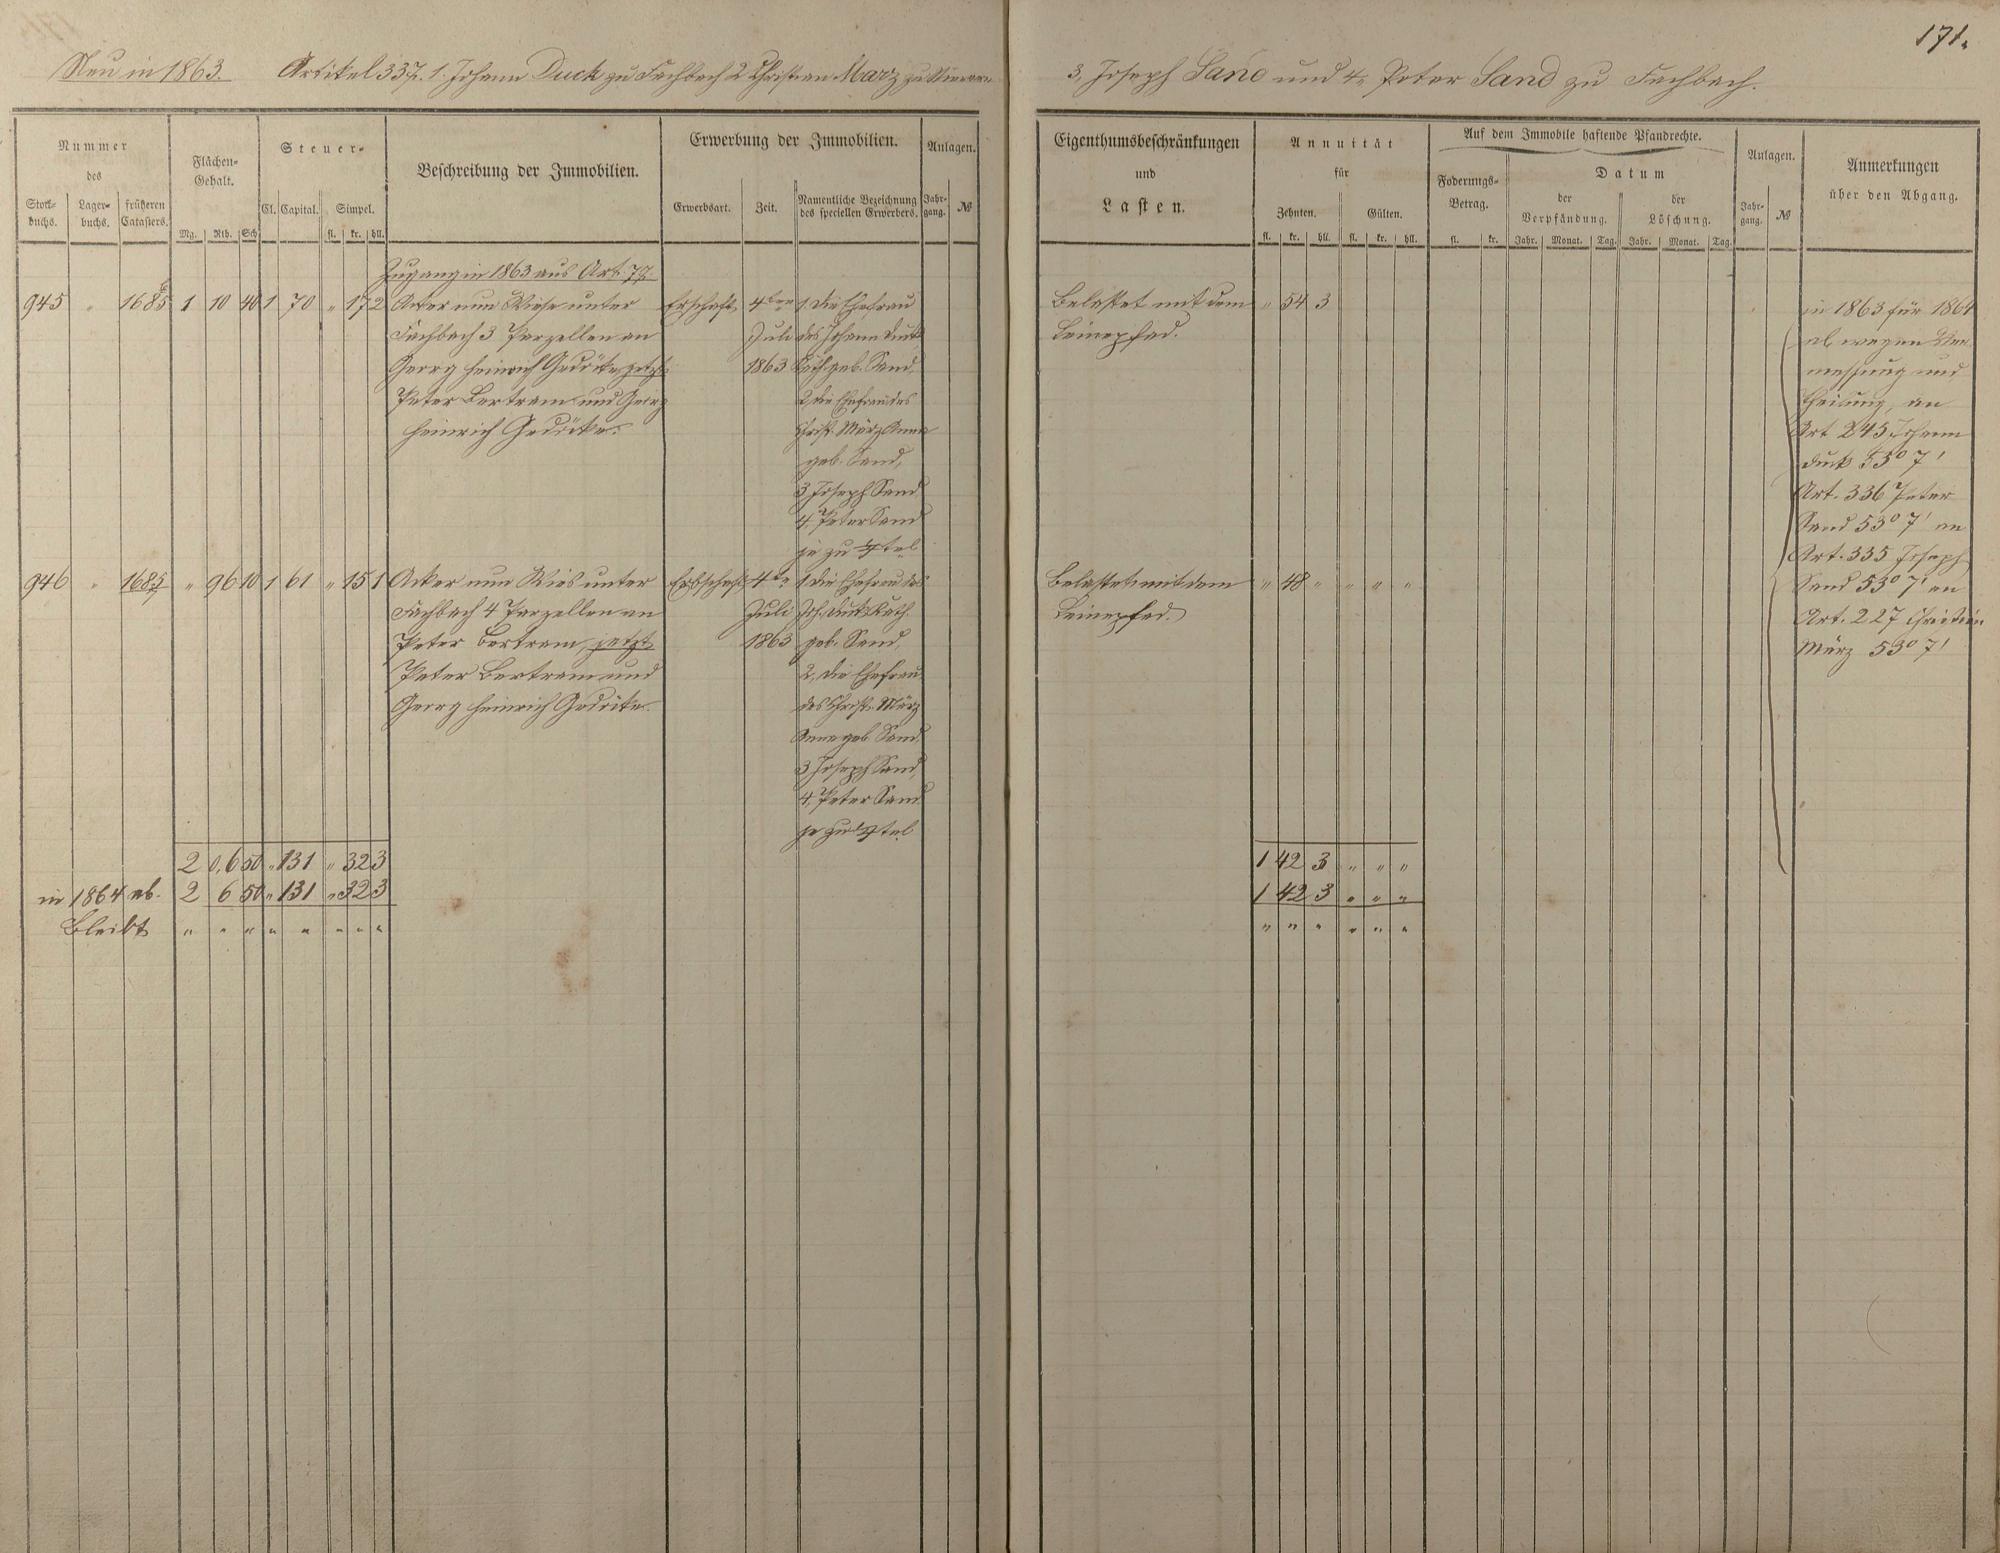 171.
Neu in 1863. Artikel 337. 1. Johann Duck zu Fachbach 2 Christian März zu Nievern
3, Joseph Sand und 4. Peter Sand zu Fachbach.
Nummer
des
Stock-
buchs.
Lager-
buchs.
früheren
Catasters.
Flächen-
Gehalt.
Mg. Rth. Sch
Steuer-
Cl. Capital. Simpel.
fl. kr. hll.
Beschreibung der Immobilien.
Erwerbung der Immobilien.
Erwerbsart. Zeit.
Namentliche Bezeichnung
des speciellen Erwerbers.
Anlagen.
Jahr-
gang. №
Eigenthumsbeschränkungen
und
Lasten.
Annuität
für
Zehnten. Gülten.
fl. kr. hll. fl. kr. hll.
Auf dem Immobile haftende Pfandrechte.
Foderungs-
Betrag.
fl. kr.
Datum
der
Verpfändung.
der
Löschung.
Jahr. Monat. Tag. Jahr. Monat. Tag.
Anlagen.
Jahr-
gang. №
Anmerkungen
über den Abgang.
Zugang in 1863 aus Art. 77
945 " 1685 1 10 40 1 70 " 17 2
Acker nun Wiese unter
Fachbach 3 Parzellen an
Georg Heinrich Gedöcke, jetzt
Peter Bertram und Georg
Heinrich Gedöcke.
Erbschaft 4ten
Juli
1863
1. die Ehefrau
des Johann Duck
Kath. geb. Sand,
2, die Ehefrau des
Christ. März Anna
geb. Sand,
3 Joseph Sand
4, Peter Sand
je zu 1/4tel
Belastet mit dem
Leinepfad.
" 54 3
in 1863 für 1864
ab wegen Ver-
messung und
Theilung, an
Art 245 Johann
Duck 53° 7'
Art. 336 Peter
Sand 53° 7' an
Art. 335 Joseph
Sand 53° 7' an
Art. 227 Christian
März 53° 7'
946 " 1685 " 96 10 1 61 " 15 1
Acker nun Wies unter
Fachbach 4 Parzellen an
Peter Bertram, jetzt
Peter Bertram und
Georg Heinrich Gedöcke.
Erbschaft 4te
Juli
1863
1. die Ehefrau des
Joh. Duck Kath.
geb. Sand,
2, die Ehefrau
des Christ. März
Anna geb. Sand.
3 Joseph Sand,
4, Peter Sand
je zu 1/4tel
Belastet mit dem
Leinepfad.
" 48 " " " "
2 0,6 50 " 131 " 32 3
1 42 3 " " "
in 1864 ab. 2 6 50 " 131 " 32 3
1 42 3 " " "
Bleibt " " " " " " " "
" " " " " "